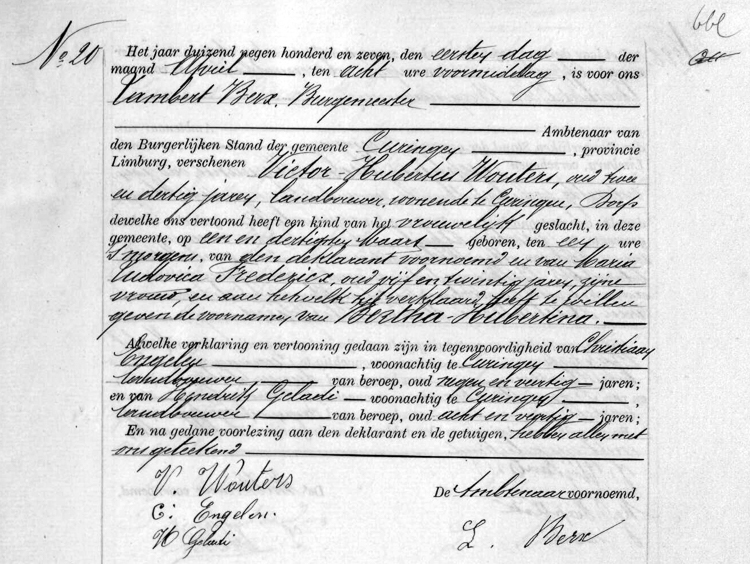 No 20
Het jaar duizend negen honderd en zeven, den eersten dag der
maand April, ten acht ure voormiddag, is voor ons
Lambert Berx, Burgemeester
Ambtenaar van
den Burgerlijken Stand der gemeente Curingen, provincie
Limburg, verschenen Victor-Hubertus Wouters, oud twee
en dertig jaren, landbouwer, wonende te Curingen, Dorp
dewelke ons vertoond heeft een kind van het vrouwelijk geslacht, in deze
gemeente, op een en dertigsten Maart geboren, ten een ure
's morgens, van den deklarant voornoemd en van Maria
Ludovica Frederix, oud vijf en twintig jaren, zijne
vrouw, en aan hetwelk hij verklaard heeft te willen
geven de voornamen van Bertha-Hubertina.
Alwelke verklaring en vertooning gedaan zijn in tegenwoordigheid van Christiaan
Engelen, woonachtig te Curingen
landbouwer van beroep, oud negen en veertig jaren;
en van Hendrik Geladi woonachtig te Curingen,
landbouwer van beroep, oud acht en veertig jaren;
En na gedane voorlezing aan den deklarant en de getuigen, hebben allen met
ons geteekend
V. Wouters
De Ambtenaar voornoemd,
C. Engelen
H Geladi
L. Berx